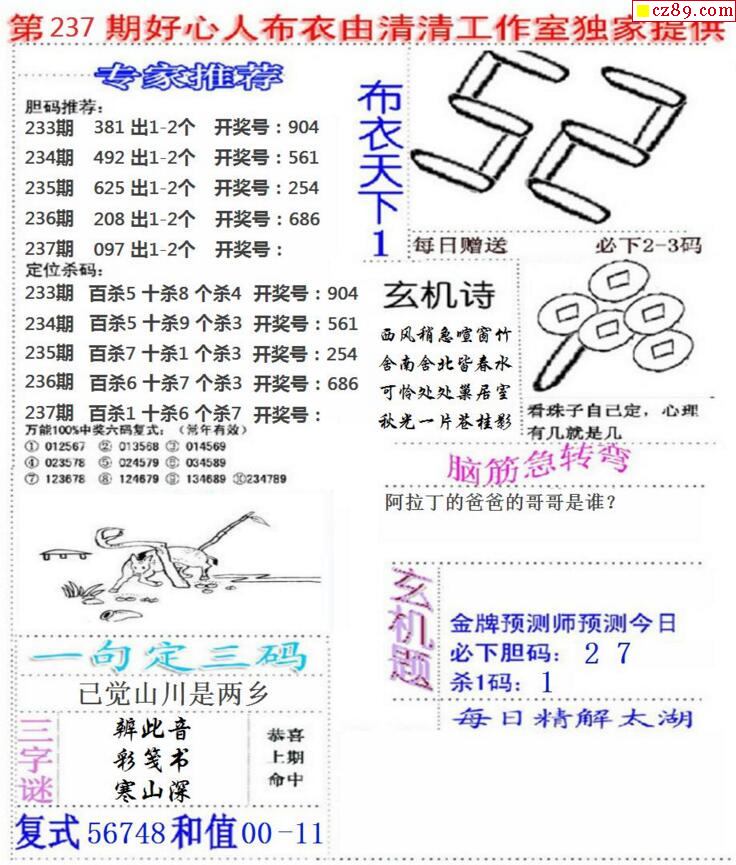 cz89.com
第 237 期好心人布衣由清清工作室独家提供
专家推荐
胆码推荐：
233期 381 出1-2个 开奖号：904
234期 492 出1-2个 开奖号：561
235期 625 出1-2个 开奖号：254
236期 208 出1-2个 开奖号：686
237期 097 出1-2个 开奖号：
定位杀码：
233期 百杀5 十杀8 个杀4 开奖号：904
234期 百杀5 十杀9 个杀3 开奖号：561
235期 百杀7 十杀1 个杀3 开奖号：254
236期 百杀6 十杀7 个杀3 开奖号：686
237期 百杀1 十杀6 个杀7 开奖号：
万能100%中奖六码复式：（常年有效）
① 012567 ② 013568 ③ 014569
④ 023578 ⑤ 024579 ⑥ 034589
⑦ 123678 ⑧ 124679 ⑨ 134689 ⑩234789
一句定三码
已觉山川是两乡
三字谜
辨此音
彩笺书
寒山深
恭喜
上期
命中
复式 56748 和值 00-11
布衣天下1
每日赠送 必下2-3码
玄机诗
西风稍急喧窗竹
舍南舍北皆春水
可怜处处巢居室
秋光一片苍桂影
看珠子自己定，心理
有几就是几
脑筋急转弯
阿拉丁的爸爸的哥哥是谁？
玄机题
金牌预测师预测今日
必下胆码： 2 7
杀1码： 1
每日精解太湖